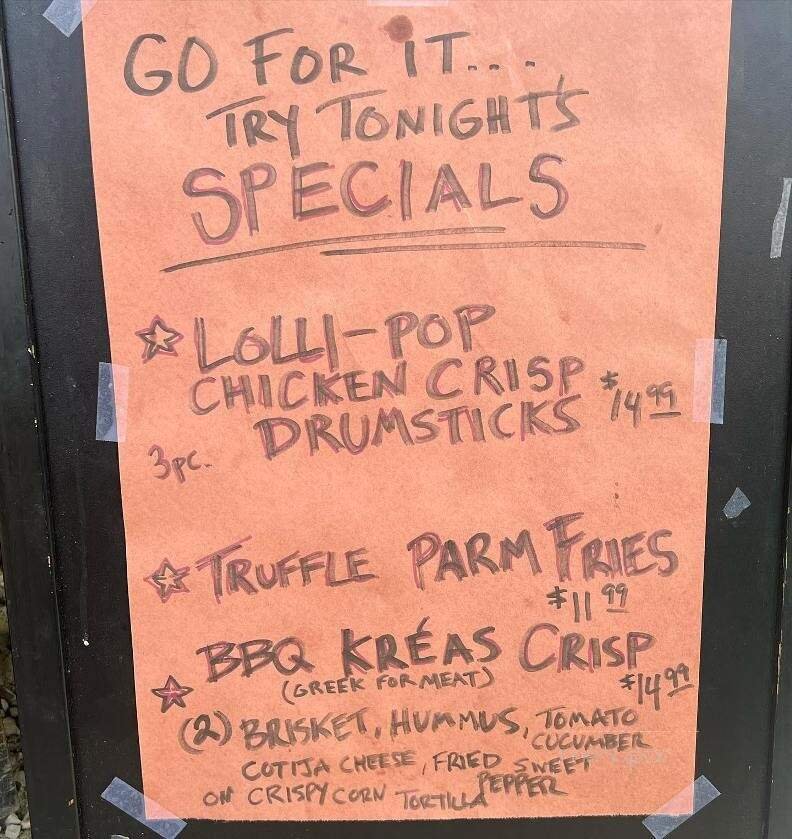 GO FOR IT...
TRY TONIGHT'S
SPECIALS
LOLLI-POP
CHICKEN CRISP
DRUMSTICKS $14.99
3pc.
TRUFFLE PARM FRIES
$11.99
BBQ KRÉAS CRISP
(GREEK FOR MEAT) $14.99
(2) BRISKET, HUMMUS, TOMATO
CUCUMBER
COTIJA CHEESE, FRIED SWEET
PEPPER
ON CRISPY CORN TORTILLA